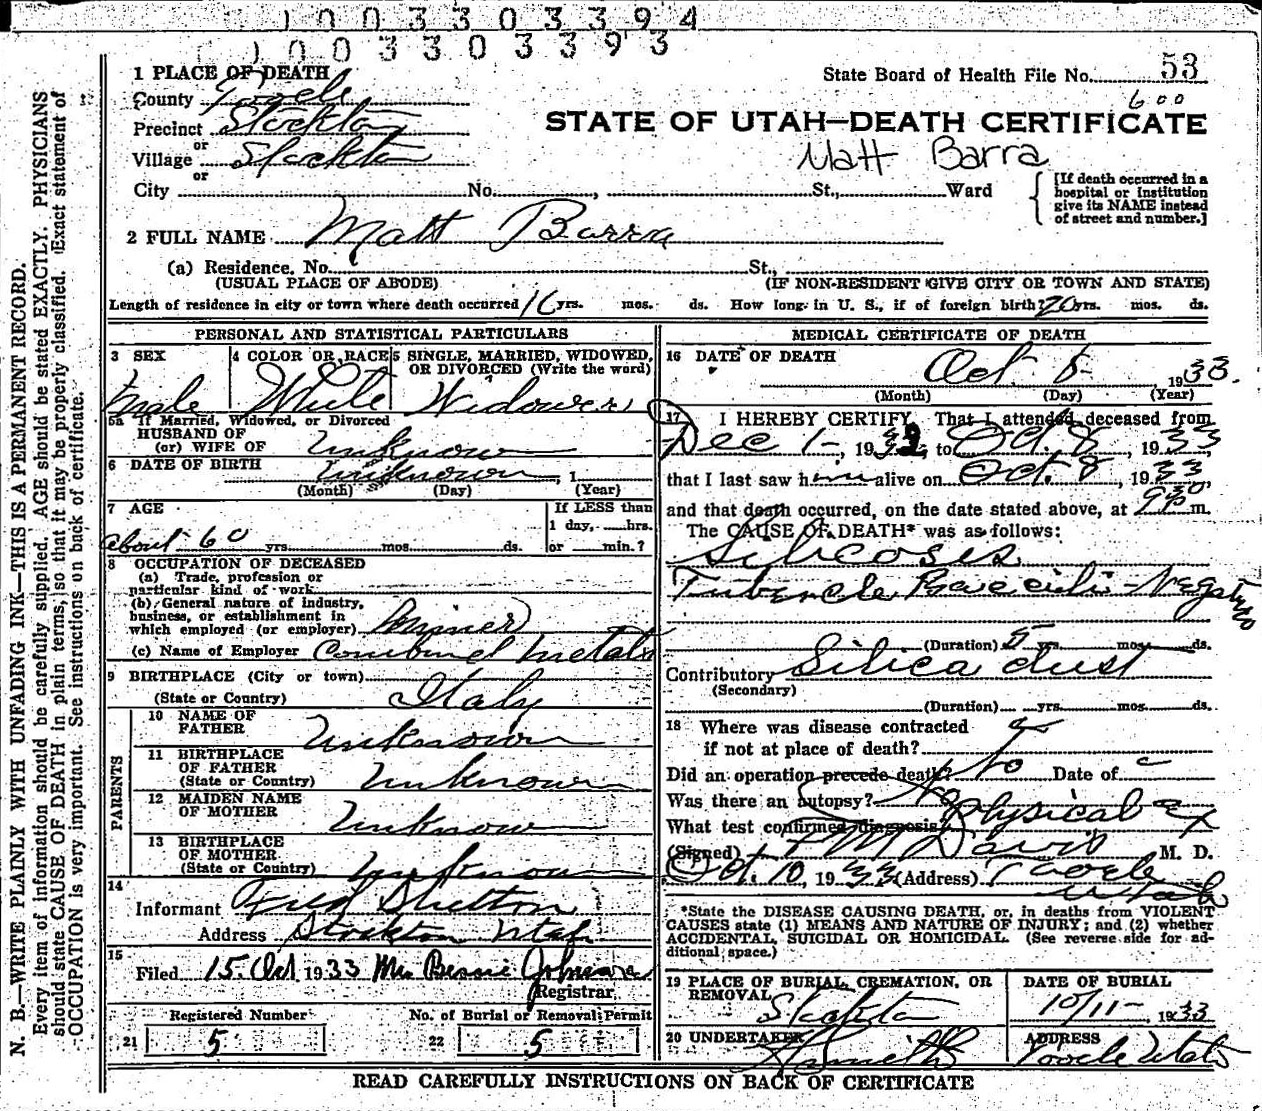 1 0 0 3 3 0 3 3 9 4
1 0 0 3 3 0 3 3 9 3
1 PLACE OF DEATH
State Board of Health File No. 53
County Tooele
600
Precinct Stockton
STATE OF UTAH—DEATH CERTIFICATE
or
Village Stockton
Matt Barra
or
City No. , St., Ward
[If death occurred in a hospital or institution give its NAME instead of street and number.]
2 FULL NAME Matt Barra
(a) Residence. No. St.,
(USUAL PLACE OF ABODE) (IF NON-RESIDENT GIVE CITY OR TOWN AND STATE)
Length of residence in city or town where death occurred 16 yrs. mos. ds. How long in U. S., if of foreign birth? 20 yrs. mos. ds.
PERSONAL AND STATISTICAL PARTICULARS
3 SEX 4 COLOR OR RACE 5 SINGLE, MARRIED, WIDOWED,
OR DIVORCED (Write the word)
Male White Widower
5a If Married, Widowed, or Divorced
HUSBAND OF
(or) WIFE OF Unknown
6 DATE OF BIRTH Unknown, 1
(Month) (Day) (Year)
7 AGE If LESS than
1 day, hrs.
about 60 yrs. mos. ds. or min.?
8 OCCUPATION OF DECEASED
(a) Trade, profession or
particular kind of work
(b) General nature of industry,
business, or establishment in
which employed (or employer) Miner
(c) Name of Employer Combined Metals
9 BIRTHPLACE (City or town)
(State or Country) Italy
PARENTS
10 NAME OF
FATHER Unknown
11 BIRTHPLACE
OF FATHER
(State or Country) Unknown
12 MAIDEN NAME
OF MOTHER Unknown
13 BIRTHPLACE
OF MOTHER
(State or Country) Unknown
14
Informant Fred Shelton
Address Stockton Utah
15
Filed 15 Oct 1933 Mrs Bessie Johnson
Registrar
Registered Number No. of Burial or Removal Permit
21 5 22 5
MEDICAL CERTIFICATE OF DEATH
16 DATE OF DEATH
Oct 8 1933.
(Month) (Day) (Year)
17 I HEREBY CERTIFY, That I attended deceased from
Dec 1-, 1932, to Oct. 8 1933,
that I last saw him alive on Oct. 8, 1933
and that death occurred, on the date stated above, at 9 30 P m.
The CAUSE OF DEATH* was as follows:
Silicoses
Tubercle Baccili - Negative
(Duration) 5 yrs. mos. ds.
Contributory Silica dust
(Secondary)
(Duration) yrs. mos. ds.
18 Where was disease contracted
if not at place of death?
Did an operation precede death? No Date of
Was there an autopsy? No
What test confirmed diagnosis? Physical Ex
(Signed) F M Davis M. D.
Oct. 10, 1933 (Address) Tooele
Utah
*State the DISEASE CAUSING DEATH, or, in deaths from VIOLENT
CAUSES state (1) MEANS AND NATURE OF INJURY; and (2) whether
ACCIDENTAL, SUICIDAL OR HOMICIDAL. (See reverse side for ad-
ditional space.)
19 PLACE OF BURIAL, CREMATION, OR DATE OF BURIAL
REMOVAL
Stockton 10/11-, 1933
20 UNDERTAKER ADDRESS
Tooele Utah
READ CAREFULLY INSTRUCTIONS ON BACK OF CERTIFICATE
N. B.—WRITE PLAINLY WITH UNFADING INK—THIS IS A PERMANENT RECORD.
Every item of information should be carefully supplied. AGE should be stated EXACTLY. PHYSICIANS
should state CAUSE OF DEATH in plain terms, so that it may be properly classified. Exact statement of
OCCUPATION is very important. See instructions on back of certificate.